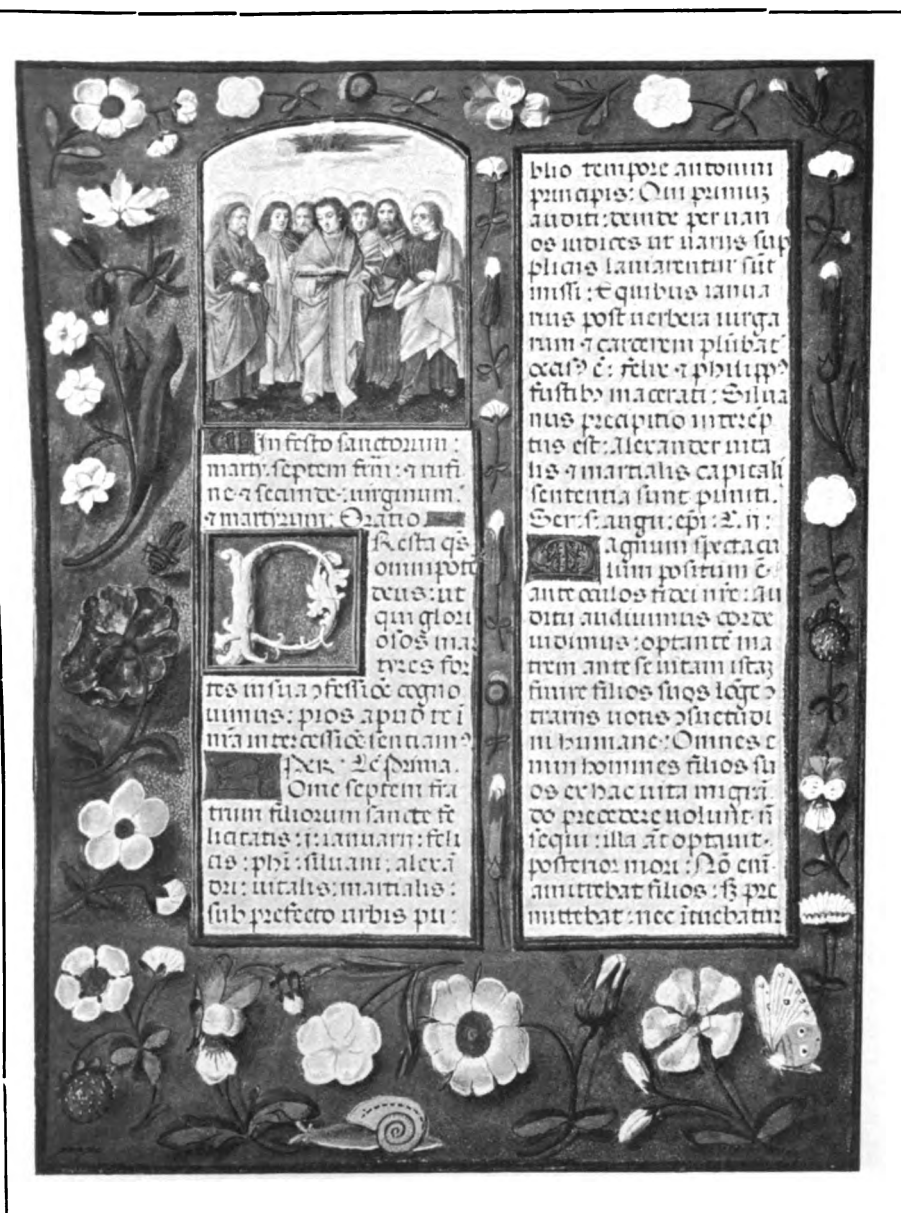 In festo sanctorum:
marty. septem frm: ⁊ rufi
ne ⁊ secunde: uirginum:
⁊ martyrum: Oratio
PResta qs
omnipotē
deus: ut
qui glori
osos mar
tyres for
tes in sua ꝯfessiōe cogno
uimus: pios apud te ī
nr̄a intercessiōe sentiamꝰ
Per. Lc̄ Prima.
Ome septem fra
trum filiorum sancte fe
licitatis: s: ianuarii: feli
cis: phi: siluani: alexā
dri: uitalis: martialis:
sub prefecto urbis pu:
blio tempore antonini
principis: Qui primuz
auditi: deinde per uari
os iudices ut uariis sup
pliciis laniarentur sūt
missi: E quibus ianua
rius post uerbera uirga
rum ⁊ carcerem plūbat
occisꝰ ē: felix ⁊ philippꝰ
fustibꝰ macerati: Silua
nus precipitio interēp
tus est: Alexander uita
lis ⁊ martialis capitali
sententia sunt puniti.
Ser: s: augu: epi: L. ii:
Magnum spectacu
lum positum ē
ante oculos fidei nr̄e: au
ditu audiuimus corde
uidimus: optantē ma
trem ante se uitam istaz
finire filios suos lōge ꝯ
trariis uotis ꝯsuetudi
ni humane: Omnes e
nim homines filios su
os ex hac uita migrā
do precedere uolunt: nō
sequi: illa āt optauit
posterior mori: Nō enī
amittebat filios: sꝫ pre
mittebat: nec ītuebatur